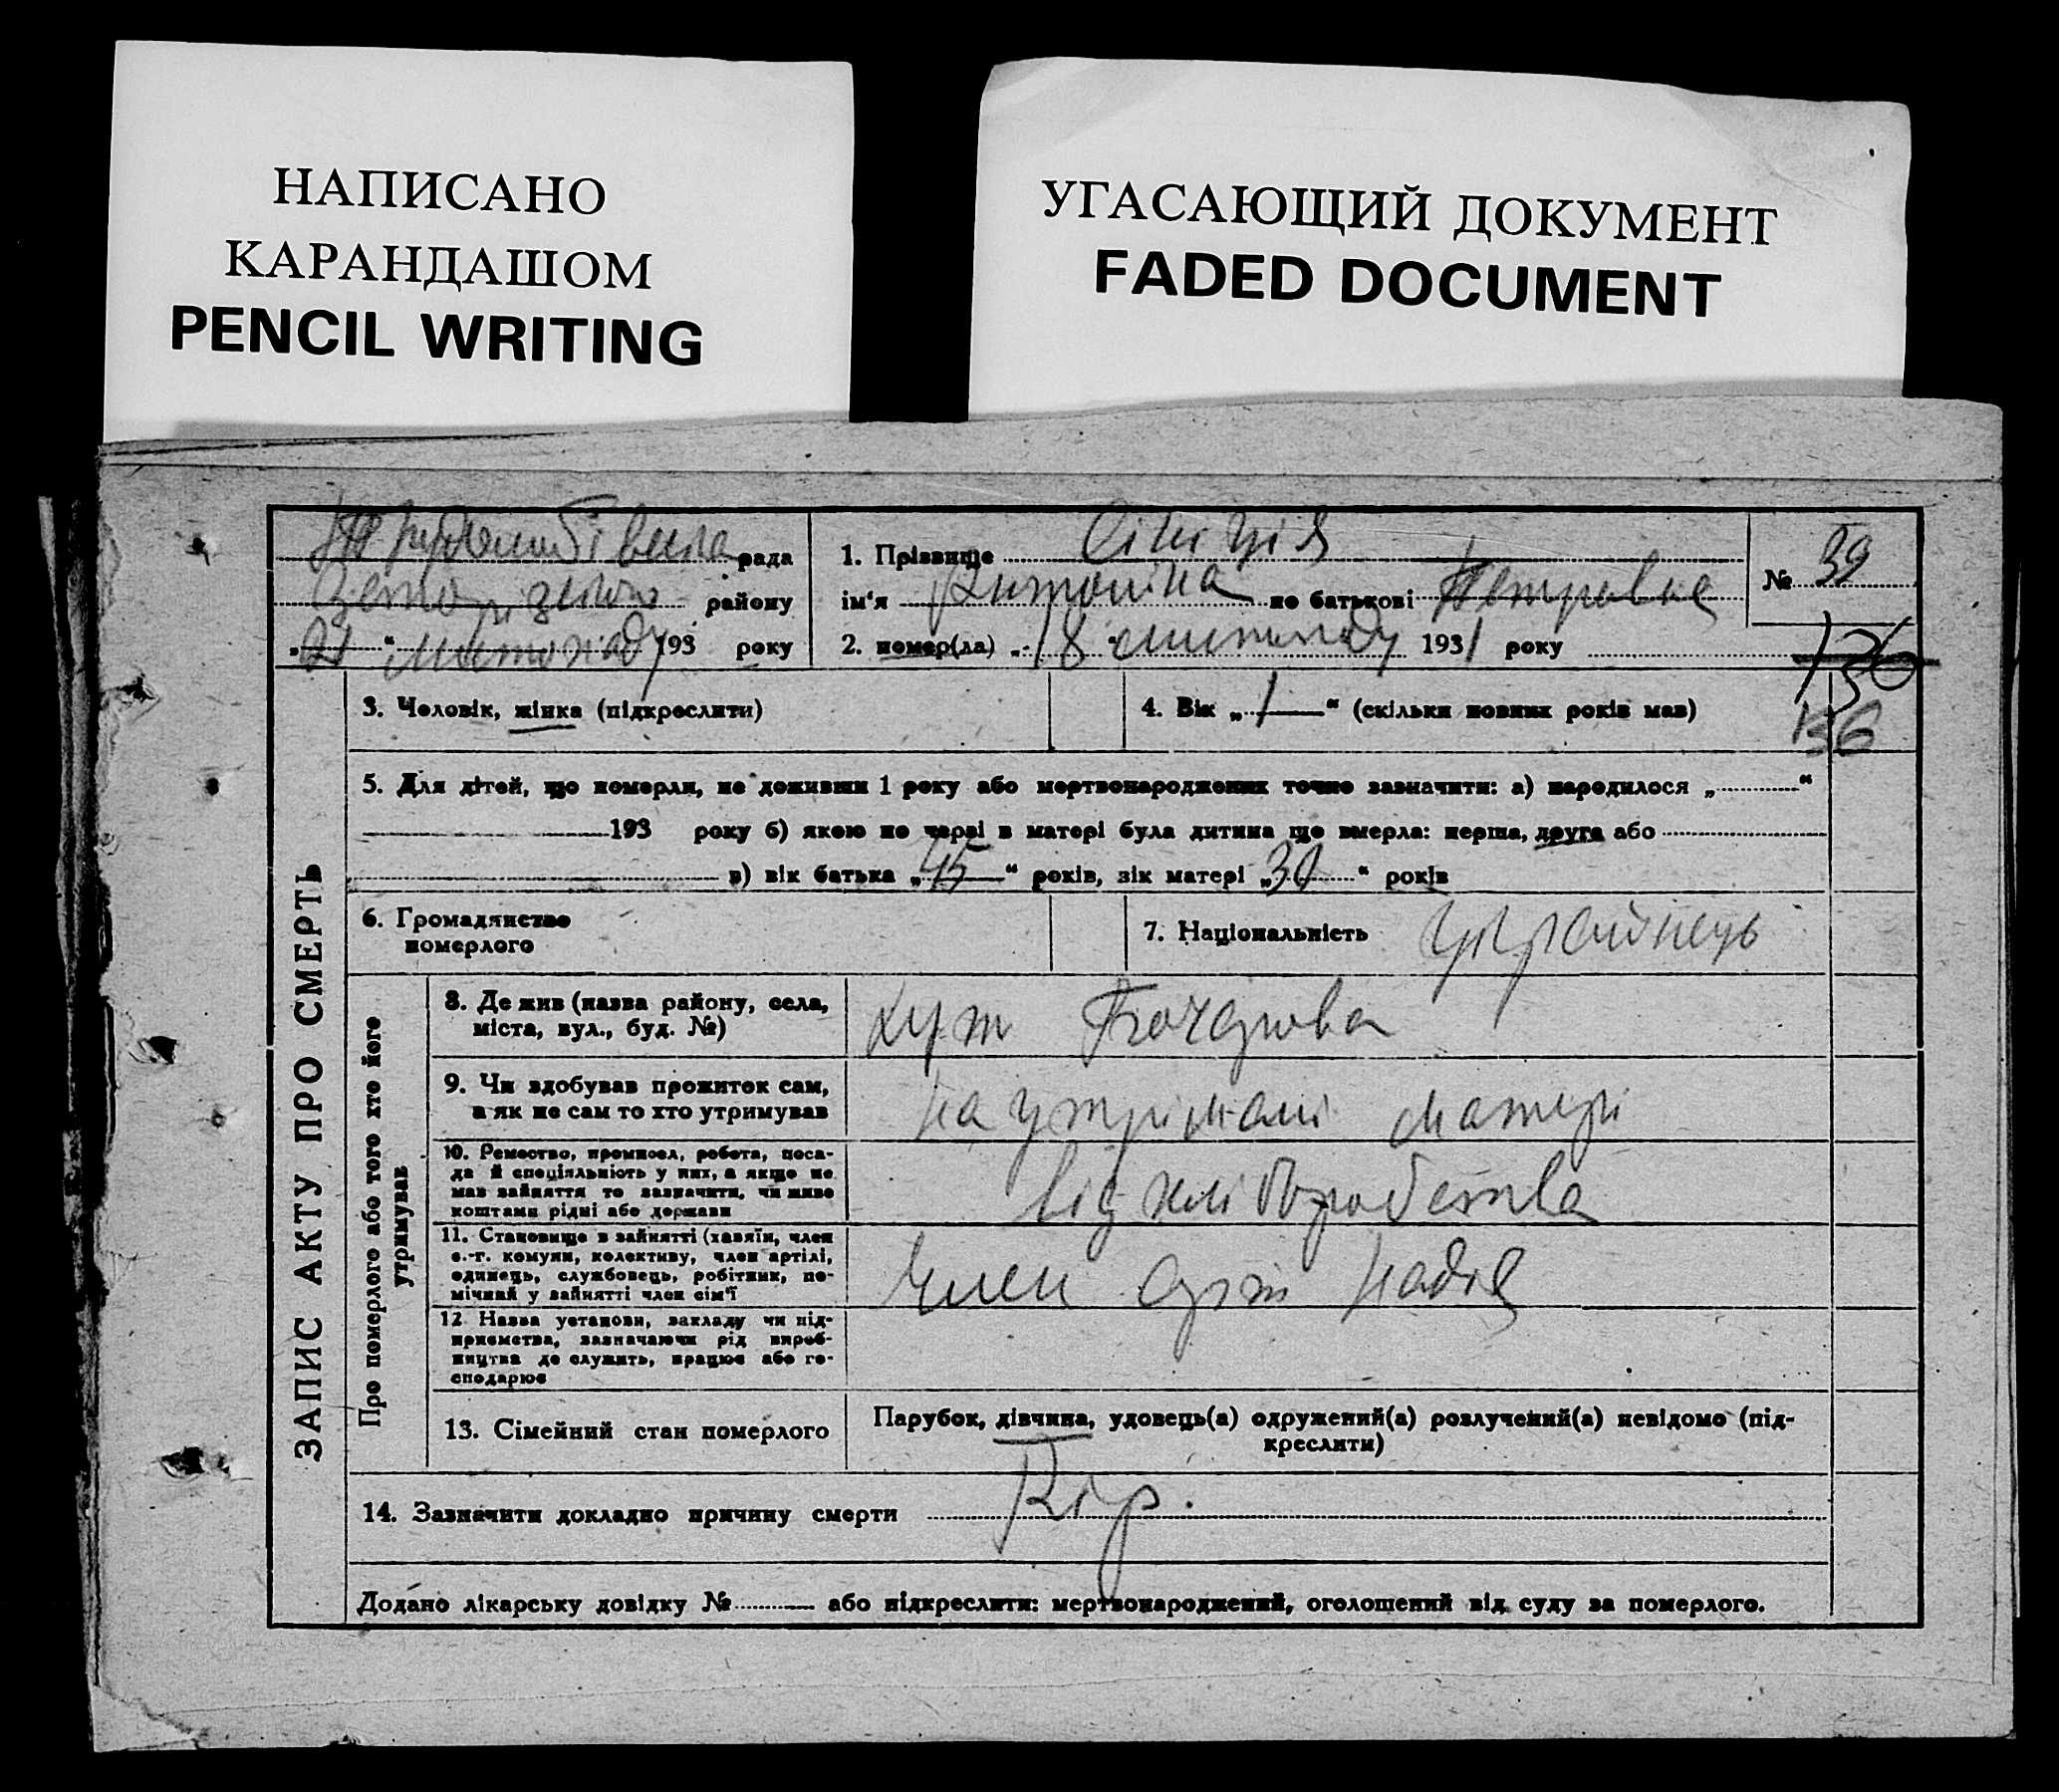 НАПИСАНО
КАРАНДАШОМ
PENCIL WRITING
УГАСАЮЩИЙ ДОКУМЕНТ
FADED DOCUMENT
рада
району
„21“ листопаду 193 року
1. Прізвище
ім'я Антоніна по батькові Петровна
2. помер(ла) „18“ листопаду 1931 року
№ 39
136
136
ЗАПИС АКТУ ПРО СМЕРТЬ
3. Чоловік, жінка (підкреслити)
4. Вік „1“ (скільки повних років мав)
5. Для дітей, що померли, не доживши 1 року або мертвонароджених точно зазначити: а) народилося „ “
193 року б) якою по черзі в матері була дитина що вмерла: перша, друга або
в) вік батька „45“ років, вік матері „30“ років
6. Громадянство
померлого
7. Національність Українець
Про померлого або того хто його
утримував
8. Де жив (назва району, села,
міста, вул., буд. №)
хут
9. Чи здобував прожиток сам,
а як не сам то хто утримував
на утрімані матері
10. Ремество, промисел, робота, поса-
да й спеціяльність у них, а якщо не
мав зайняття то зазначити, чи живе
коштами рідні або держави
від хліборобства
11. Становище в зайнятті (хазяїн, член
с.-г. комуни, колективу, член артілі,
одинець, службовець, робітник, по-
мічний у зайнятті член сім'ї
Член
12 Назва установи, закладу чи під-
приємства, зазначаючи рід вироб-
ництва де служить, працює або го-
сподарює
13. Сімейний стан померлого
Парубок, дівчина, удовець(а) одружений(а) розлучений(а) невідомо (під-
креслити)
14. Зазначити докладно причину смерти Кір.
Додано лікарську довідку № або підкреслити: мертвонароджений, оголошений від суду за померлого.